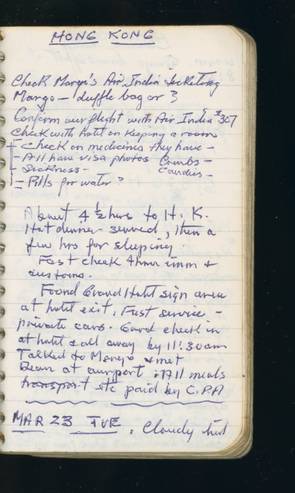 HONG KONG
Check Marge's Air India ticketing
Margo - duffle bag or ?
Conform our flight with Air India #307
Check with hotel on keeping a room
- Check on medicines they have -
- All have visa photos Combs -
- Sickness - Candies -
- Pills for water?
About 4 1/2 hrs to H.K.
Hot dinner served, then a
few hrs for sleeping.
Fast check thru imm +
customs.
Found Grand Hotel sign area
at hotel exit. Fast service -
private cars. Good check in
at hotel + all away by 11:30am
Talked to Margo + met
Dean at airport. All meals
transport etc paid by C.P.A
MAR 23 TUE, Cloudy but